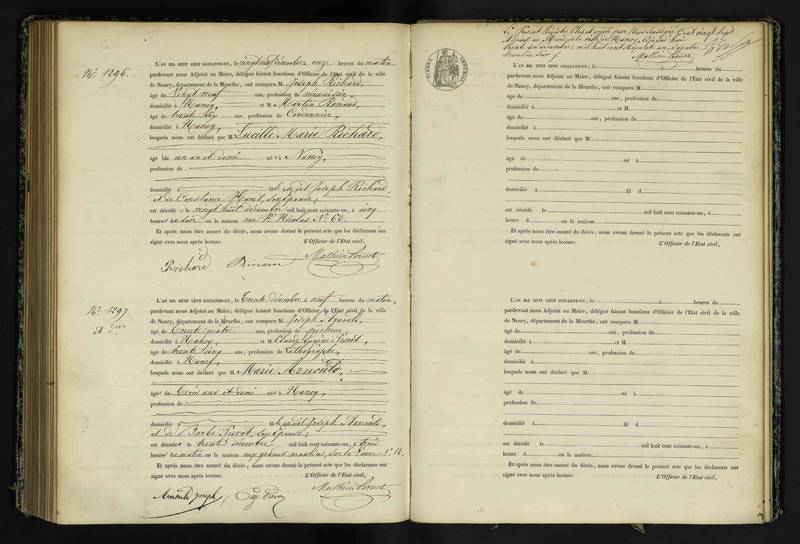 N° 1296.
L'AN MIL HUIT CENT SOIXANTE-UN, le vingt neuf Décembre onze heures du matin
pardevant nous Adjoint au Maire, délégué faisant fonctions d'Officier de l'Etat civil de la ville
de Nancy, département de la Meurthe, ont comparu M. Joseph Richard,
âgé de Vingt neuf ans, profession de
domicilié à Nancy, et M. Martin
âgé de trente ans, profession de Cordonnier
domicilié à Nancy,
lesquels nous ont déclaré que M. Lucille Marie Richard,
âgé de un an et demi né à Nancy,
profession de
domicilié à le susdit Joseph Richard
et de Constance son épouse,
est décédé le vingt huit décembre mil huit cent soixante-un, à cinq
heures du soir en la maison rue St Nicolas N° 62.
Et après nous être assuré du décès, nous avons dressé le présent acte que les déclarants ont
signé avec nous après lecture. L'Officier de l'Etat civil,
Richard
N° 1297.
L'AN MIL HUIT CENT SOIXANTE-UN, le Trente décembre à neuf heures du matin,
pardevant nous Adjoint au Maire, délégué faisant fonctions d'Officier de l'Etat civil de la ville
de Nancy, département de la Meurthe, ont comparu M. Joseph Arnould,
âgé de Trente quatre ans, profession de pêcheur,
domicilié à Nancy, et M.
âgé de trente cinq ans, profession de Lithographe,
domicilié à Nancy,
lesquels nous ont déclaré que M. Marie Arnould,
âgé de Trois ans et demi né à Nancy,
profession de
domicilié à le susdit Joseph Arnould
et de Barbe Pierrot, son épouse,
est décédé le trente décembre mil huit cent soixante-un, à trois
heures du matin en la maison aux grands moulins,
Et après nous être assuré du décès, nous avons dressé le présent acte que les déclarants ont
signé avec nous après lecture. L'Officier de l'Etat civil,
Arnould joseph
Le Présent Registre Clos et arrêté par Nous
Adjoint au Maire de la ville de Nancy,
trente un décembre mil huit cent soixante un
L'AN MIL HUIT CENT SOIXANTE-UN, le à heures du
pardevant nous Adjoint au Maire, délégué faisant fonctions d'Officier de l'Etat civil de la ville
de Nancy, département de la Meurthe, ont comparu M.
âgé de ans, profession de
domicilié à et M.
âgé de ans, profession de
domicilié à
lesquels nous ont déclaré que M.
âgé de né à
profession de
domicilié à fil d
est décédé le mil huit cent soixante-un, à
heure d en la maison
Et après nous être assuré du décès, nous avons dressé le présent acte que les déclarants ont
signé avec nous après lecture. L'Officier de l'Etat civil,
L'AN MIL HUIT CENT SOIXANTE-UN, le à heures du
pardevant nous Adjoint au Maire, délégué faisant fonctions d'Officier de l'Etat civil de la ville
de Nancy, département de la Meurthe, ont comparu M.
âgé de ans, profession de
domicilié à et M.
âgé de ans, profession de
domicilié à
lesquels nous ont déclaré que M.
âgé de né à
profession de
domicilié à fil d
est décédé le mil huit cent soixante-un, à
heure d en la maison
Et après nous être assuré du décès, nous avons dressé le présent acte que les déclarants ont
signé avec nous après lecture. L'Officier de l'Etat civil,